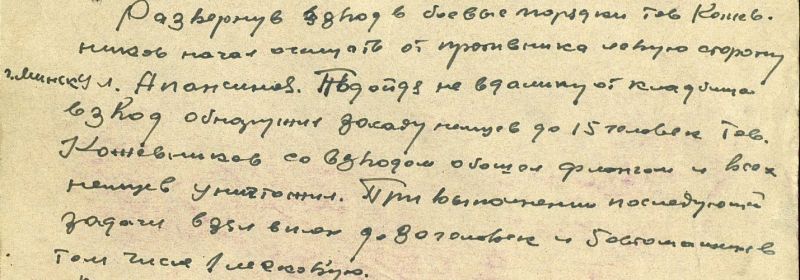 Развернув взвод в боевые порядки тов Кожев.
ников начал очищать от противника левую сторону
г. Минск ул. Апанский. Подойдя не вдалику от кладбища
взвод обнаружил засаду немцев до 15 человек Тов.
Кожевников со взводом обошел флангом и всех
немцев уничтожил. При выполнении последующей
задачи взял в плен до 30 человек и 6 автомашин в
том числе 1 легковую.